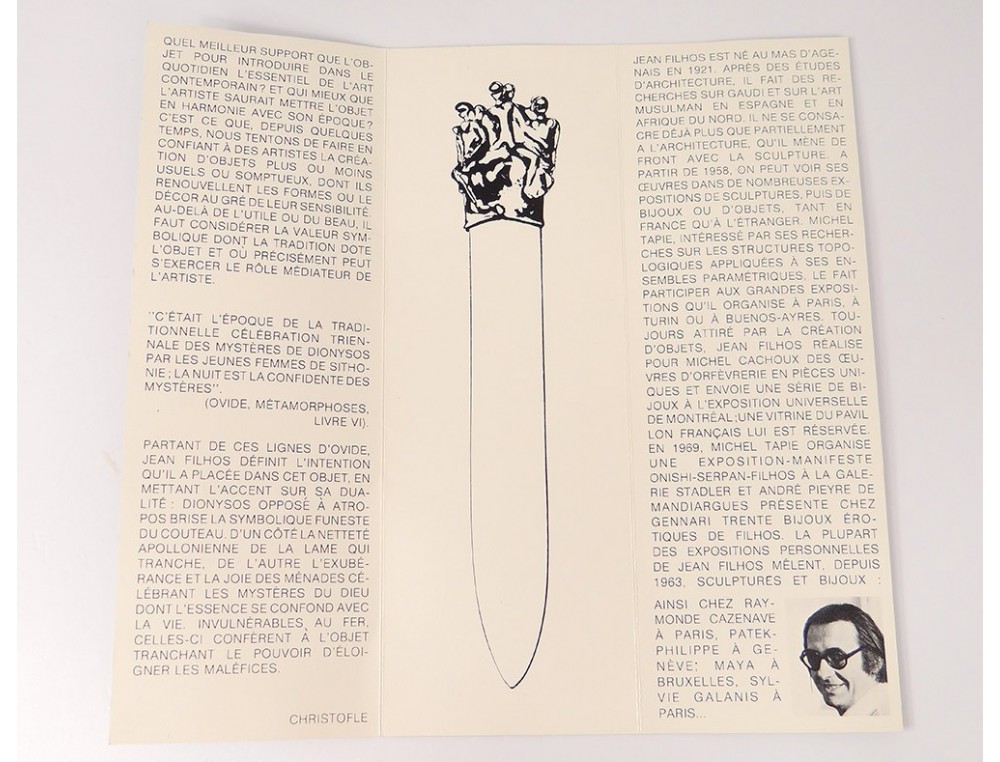 QUEL MEILLEUR SUPPORT QUE L'OB-
JET POUR INTRODUIRE DANS LE
QUOTIDIEN L'ESSENTIEL DE L'ART
CONTEMPORAIN? ET QUI MIEUX QUE
L'ARTISTE SAURAIT METTRE L'OBJET
EN HARMONIE AVEC SON ÉPOQUE?
C'EST CE QUE, DEPUIS QUELQUES
TEMPS, NOUS TENTONS DE FAIRE EN
CONFIANT À DES ARTISTES LA CRÉA-
TION D'OBJETS PLUS OU MOINS
USUELS OU SOMPTUEUX, DONT ILS
RENOUVELLENT LES FORMES OU LE
DÉCOR AU GRÉ DE LEUR SENSIBILITÉ.
AU-DELÀ DE L'UTILE OU DU BEAU, IL
FAUT CONSIDÉRER LA VALEUR SYM-
BOLIQUE DONT LA TRADITION DOTE
L'OBJET ET OÙ PRÉCISÉMENT PEUT
S'EXERCER LE RÔLE MÉDIATEUR DE
L'ARTISTE.
"C'ÉTAIT L'ÉPOQUE DE LA TRADI-
TIONNELLE CÉLÉBRATION TRIEN-
NALE DES MYSTÈRES DE DIONYSOS
PAR LES JEUNES FEMMES DE SITHO-
NIE; LA NUIT EST LA CONFIDENTE DES
MYSTÈRES".
(OVIDE, MÉTAMORPHOSES,
LIVRE VI).
PARTANT DE CES LIGNES D'OVIDE,
JEAN FILHOS DÉFINIT L'INTENTION
QU'IL A PLACÉE DANS CET OBJET, EN
METTANT L'ACCENT SUR SA DUA-
LITÉ : DIONYSOS OPPOSÉ À ATRO-
POS BRISE LA SYMBOLIQUE FUNESTE
DU COUTEAU. D'UN CÔTÉ LA NETTETÉ
APOLLONIENNE DE LA LAME QUI
TRANCHE, DE L'AUTRE L'EXUBÉ-
RANCE ET LA JOIE DES MÉNADES CÉ-
LÉBRANT LES MYSTÈRES DU DIEU
DONT L'ESSENCE SE CONFOND AVEC
LA VIE. INVULNÉRABLES AU FER,
CELLES-CI CONFÈRENT À L'OBJET
TRANCHANT LE POUVOIR D'ÉLOI-
GNER LES MALÉFICES.
CHRISTOFLE
JEAN FILHOS EST NÉ AU MAS D'AGE-
NAIS EN 1921. APRÈS DES ÉTUDES
D'ARCHITECTURE, IL FAIT DES RE-
CHERCHES SUR GAUDI ET SUR L'ART
MUSULMAN EN ESPAGNE ET EN
AFRIQUE DU NORD. IL NE SE CONSA-
CRE DÉJÀ PLUS QUE PARTIELLEMENT
A L'ARCHITECTURE, QU'IL MÈNE DE
FRONT AVEC LA SCULPTURE. A
PARTIR DE 1958, ON PEUT VOIR SES
ŒUVRES DANS DE NOMBREUSES EX-
POSITIONS DE SCULPTURES, PUIS DE
BIJOUX OU D'OBJETS, TANT EN
FRANCE QU'À L'ÉTRANGER. MICHEL
TAPIE, INTÉRESSÉ PAR SES RECHER-
CHES SUR LES STRUCTURES TOPO-
LOGIQUES APPLIQUÉES À SES EN-
SEMBLES PARAMÉTRIQUES, LE FAIT
PARTICIPER AUX GRANDES EXPOSI-
TIONS QU'IL ORGANISE À PARIS, À
TURIN OU À BUENOS-AYRES. TOU-
JOURS ATTIRÉ PAR LA CRÉATION
D'OBJETS, JEAN FILHOS RÉALISE
POUR MICHEL CACHOUX DES ŒU-
VRES D'ORFÈVRERIE EN PIÈCES UNI-
QUES ET ENVOIE UNE SÉRIE DE BI-
JOUX À L'EXPOSITION UNIVERSELLE
DE MONTRÉAL; UNE VITRINE DU PAVIL
LON FRANÇAIS LUI EST RÉSERVÉE.
EN 1969, MICHEL TAPIE ORGANISE
UNE EXPOSITION-MANIFESTE
ONISHI-SERPAN-FILHOS À LA GALE-
RIE STADLER ET ANDRÉ PIEYRE DE
MANDIARGUES PRÉSENTE CHEZ
GENNARI TRENTE BIJOUX ÉRO-
TIQUES DE FILHOS. LA PLUPART
DES EXPOSITIONS PERSONNELLES
DE JEAN FILHOS MÊLENT, DEPUIS
1963, SCULPTURES ET BIJOUX :
AINSI CHEZ RAY-
MONDE CAZENAVE
À PARIS, PATEK-
PHILIPPE À GE-
NÈVE; MAYA À
BRUXELLES, SYL-
VIE GALANIS À
PARIS...